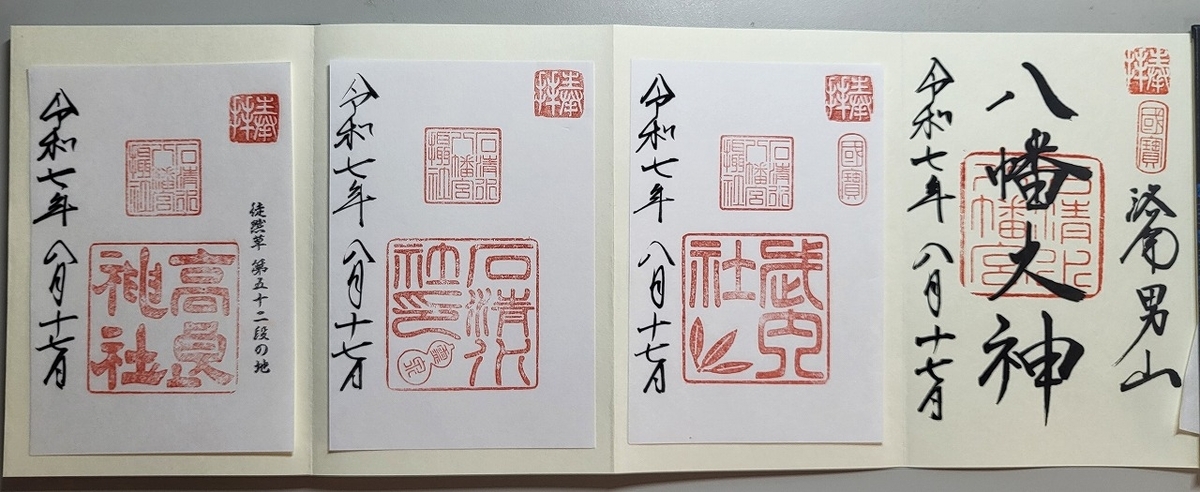 奉拝
國寶
洛南男山
八幡大神
石清水八幡宮
令和七年 八月十七日
奉拝
國寶
石清水八幡宮攝社
武内社
令和七年 八月十七日
奉拝
石清水八幡宮攝社
石清水社印
令和七年 八月十七日
奉拝
徒然草 第五十二段の地
石清水八幡宮攝社
高良神社
令和七年 八月十七日